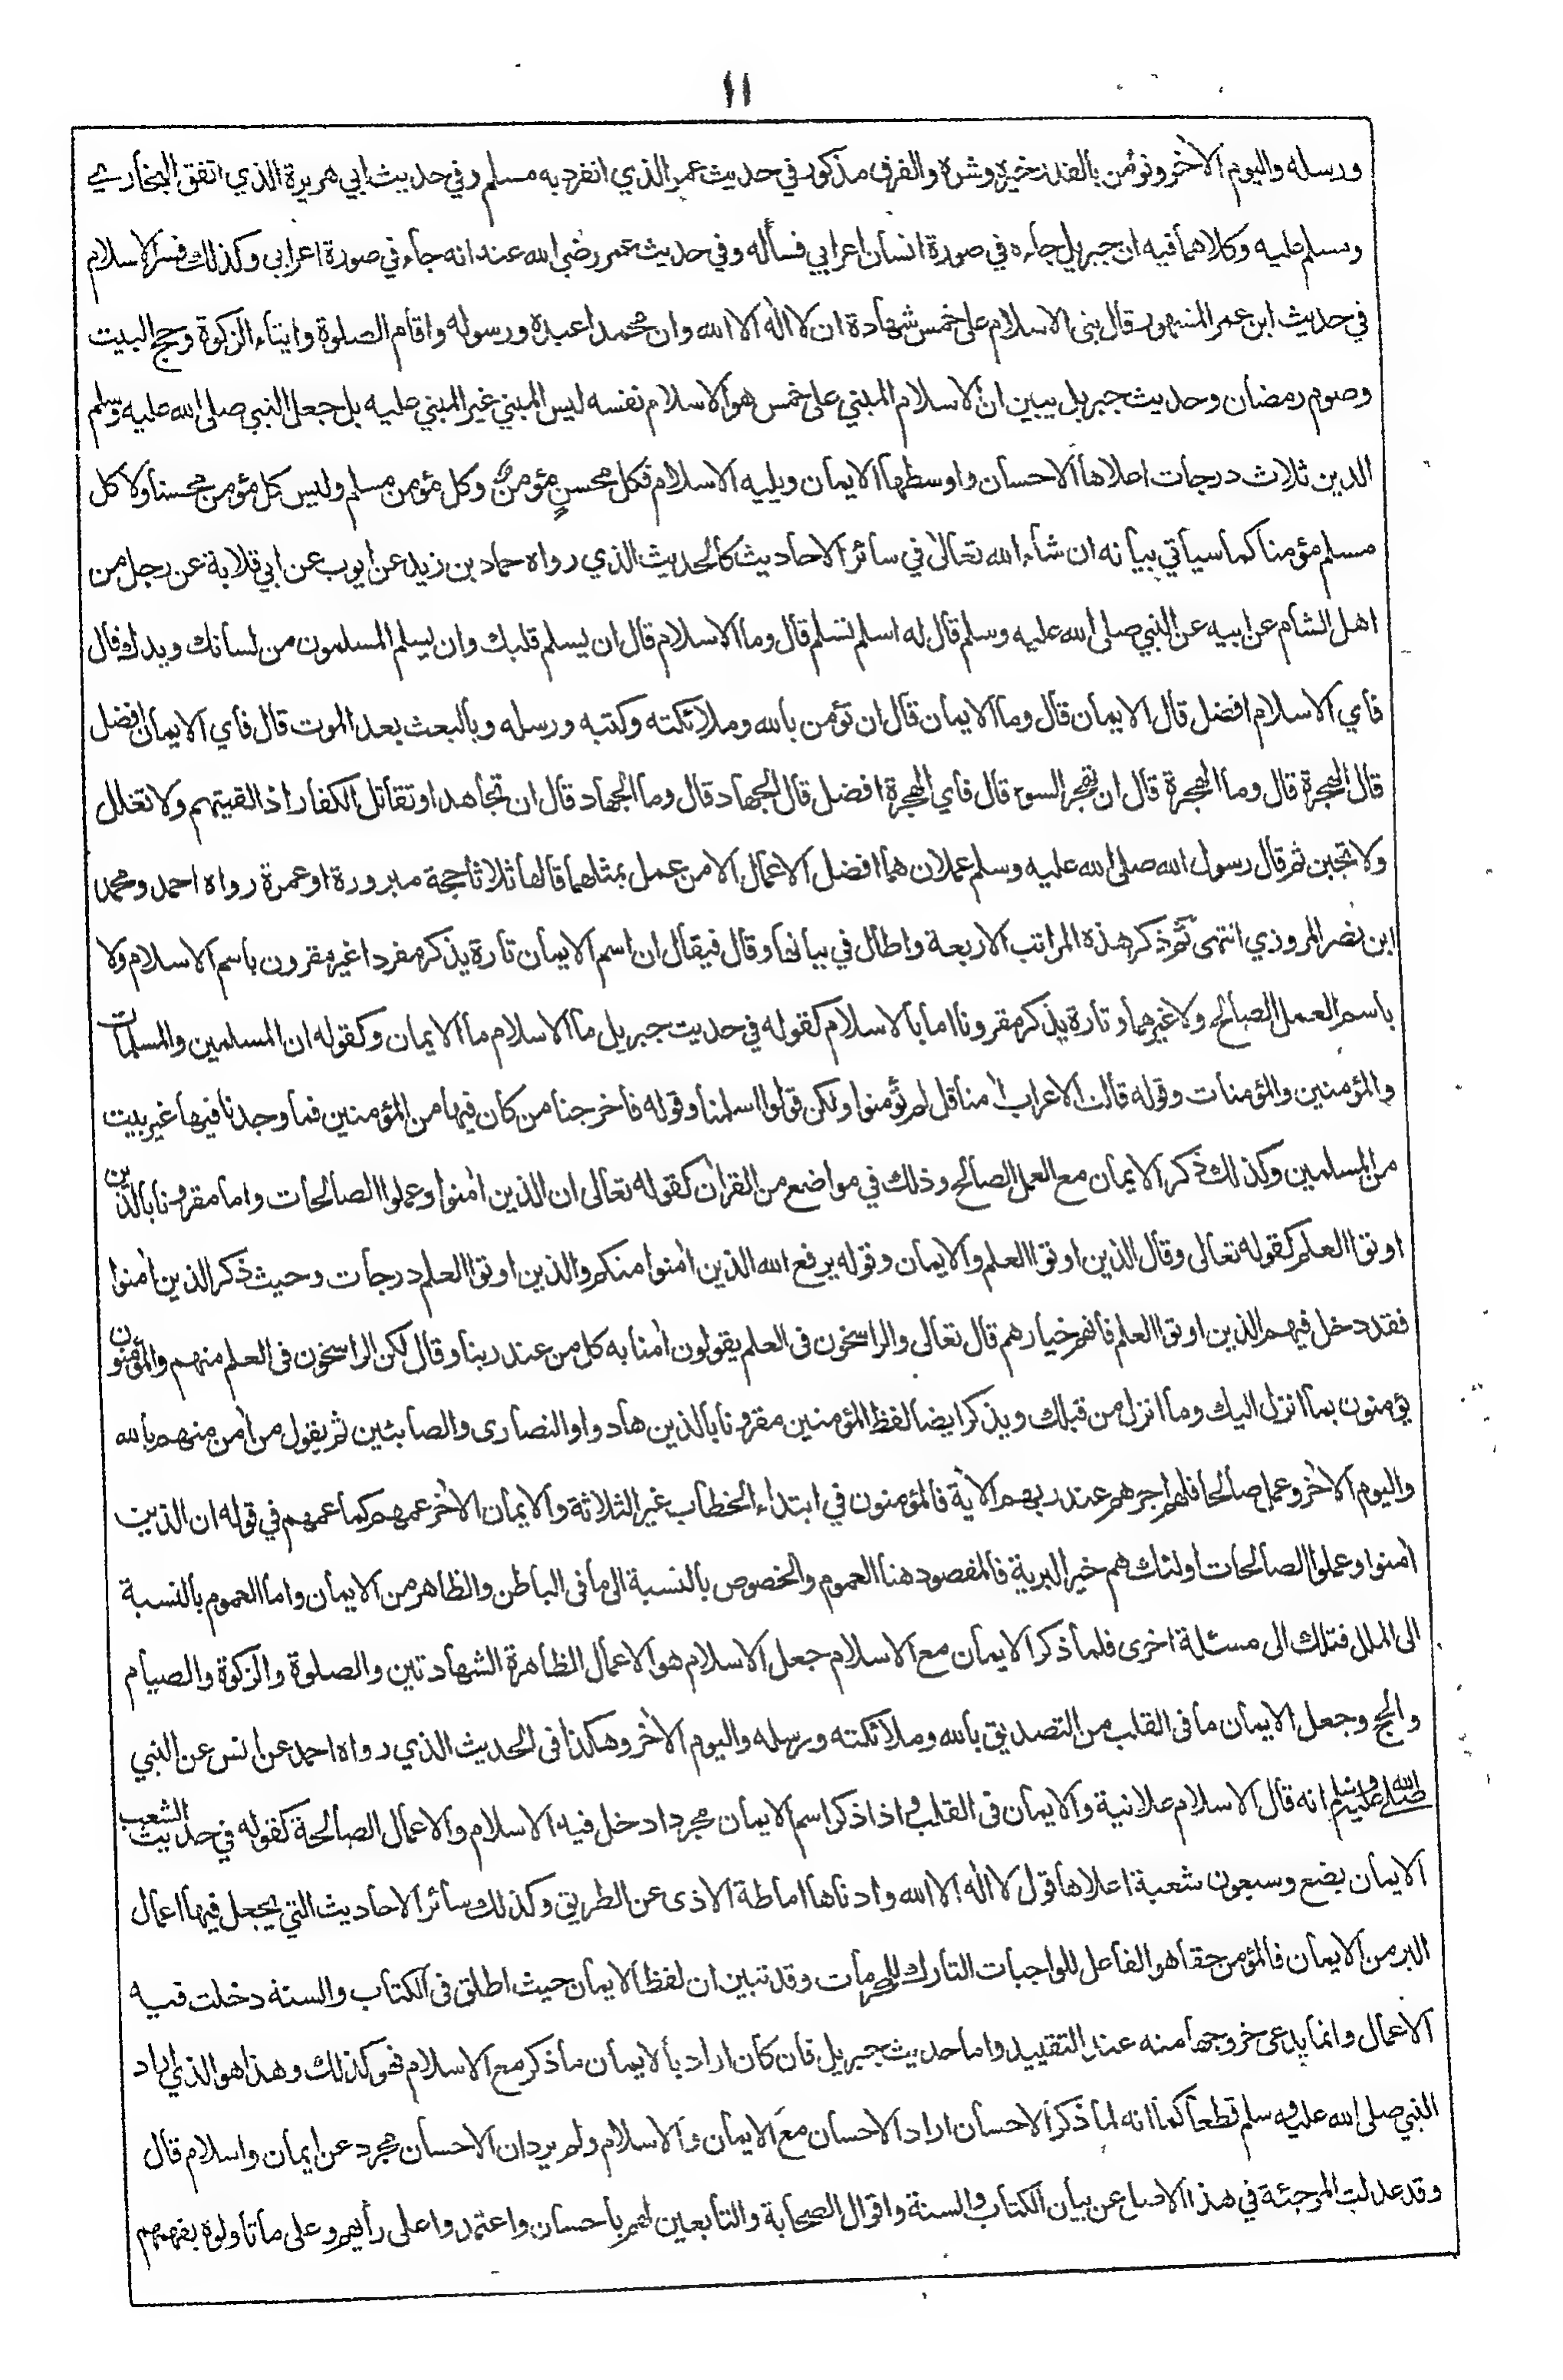 ١١
ورسله واليوم الاخر ونؤمن بالقدر خيره وشره والفرق مذكور في حديث عمر الذي انفرد به مسلم وفي حديث ابي هريرة الذي اتفق البخاري
ومسلم عليه وكلاهما فيه ان جبريل جاءه في صورة انسان اعرابي فسأله وفي حديث عمر رضي الله عنه انه جاء في صورة اعرابي وكذلك فسر الاسلام
في حديث ابن عمر المشهور قال بني الاسلام على خمس شهادة ان لا اله الا الله وان محمدا عبده ورسوله واقام الصلوة وايتاء الزكوة وحج البيت
وصوم رمضان وحديث جبريل يبين ان الاسلام المبني على خمس هو الاسلام نفسه ليس المبني غير المبني عليه بل جعل النبي صلى الله عليه وسلم
الدين ثلاث درجات اعلاها الاحسان واوسطها الايمان ويليه الاسلام فكل محسنٍ مؤمنٌ وكل مؤمن مسلم وليس كل مؤمن محسنا ولا كل
مسلم مؤمنا كما سيأتي بيانه ان شاء الله تعالى في سائر الاحاديث كالحديث الذي رواه حماد بن زيد عن ايوب عن ابي قلابة عن رجل من
اهل الشام عن ابيه عن النبي صلى الله عليه وسلم قال له اسلم تسلم قال وما الاسلام قال ان يسلم قلبك وان يسلم المسلمون من لسانك ويدك قال
فاي الاسلام افضل قال الايمان قال وما الايمان قال ان تؤمن بالله وملائكته وكتبه ورسله وبالبعث بعد الموت قال فاي الايمان افضل
قال الهجرة قال وما الهجرة قال ان تهجر السوء قال فاي الهجرة افضل قال الجهاد قال وما الجهاد قال ان تجاهد او تقاتل الكفار اذا لقيتهم ولا تغلل
ولا تجبن ثم قال رسول الله صلى الله عليه وسلم عملان هما افضل الاعمال الا من عمل بمثلهما قالها ثلاثا حجة مبرورة او عمرة رواه احمد ومحمد
ابن نصر المروزي انتهى ثم ذكر هذه المراتب الاربعة واطال في بيانها وقال فيقال ان اسم الايمان تارة يذكر مفردا غير مقرون باسم الاسلام ولا
باسم العمل الصالح ولا غيرهما وتارة يذكر مقرونا اما بالاسلام كقوله في حديث جبريل ما الاسلام ما الايمان وكقوله ان المسلمين والمسلمات
والمؤمنين والمؤمنات وقوله قالت الاعراب امنا قل لم تؤمنوا ولكن قولوا اسلمنا وقوله فاخرجنا من كان فيها من المؤمنين فما وجدنا فيها غير بيت
من المسلمين وكذلك ذكر الايمان مع العمل الصالح وذلك في مواضع من القران كقوله تعالى ان الذين امنوا وعملوا الصالحات واما مقرونا بالذين
اوتوا العلم كقوله تعالى وقال الذين اوتوا العلم والايمان وقوله يرفع الله الذين امنوا منكم والذين اوتوا العلم درجات وحيث ذكر الذين امنوا
فقد دخل فيهم الذين اوتوا العلم فانهم خيارهم قال تعالى والراسخون في العلم يقولون امنا به كل من عند ربنا وقال لكن الراسخون في العلم منهم والمؤمنون
يؤمنون بما انزل اليك وما انزل من قبلك ويذكر ايضا لفظ المؤمنين مقرونا بالذين هادوا والنصارى والصابئين ثم يقول من امن منهم بالله
واليوم الاخر وعمل صالحا فلهم اجرهم عند ربهم الاية فالمؤمنون في ابتداء الخطاب غير الثلاثة والايمان الاخر عمهم كما عمهم في قوله ان الذين
امنوا وعملوا الصالحات اولئك هم خير البرية فالمقصود هنا العموم والخصوص بالنسبة الى ما في الباطن والظاهر من الايمان واما العموم بالنسبة
الى الملل فتلك الى مسئلة اخرى فلما ذكر الايمان مع الاسلام جعل الاسلام هو الاعمال الظاهرة الشهادتين والصلوة والزكوة والصيام
والحج وجعل الايمان ما في القلب من التصديق بالله وملائكته ورسله واليوم الاخر وهكذا في الحديث الذي رواه احمد عن انس عن النبي
صلى الله عليه وسلم انه قال الاسلام علانية والايمان في القلب واذا ذكر اسم الايمان مجردا دخل فيه الاسلام والاعمال الصالحة كقوله في حديث الشعب
الايمان بضع وسبعون شعبة اعلاها قول لا اله الا الله وادناها اماطة الاذى عن الطريق وكذلك سائر الاحاديث التي يجعل فيها اعمال
البر من الايمان فالمؤمن حقا هو الفاعل للواجبات التارك للمحرمات وقد تبين ان لفظ الايمان حيث اطلق في الكتاب والسنة دخلت فيه
الاعمال وانما يدعى خروجها منه عند التقييد واما حديث جبريل فان كان اراد بالايمان ما ذكر مع الاسلام فهو كذلك وهذا هو الذي اراد
النبي صلى الله عليه وسلم قطعا كما انه لما ذكر الاحسان اراد الاحسان مع الايمان والاسلام ولم يرد ان الاحسان مجرد عن ايمان واسلام قال
وقد عدلت المرجئة في هذا الاصل عن بيان الكتاب والسنة واقوال الصحابة والتابعين لهم باحسان واعتمدوا على رأيهم وعلى ما تأولوه بفهمهم